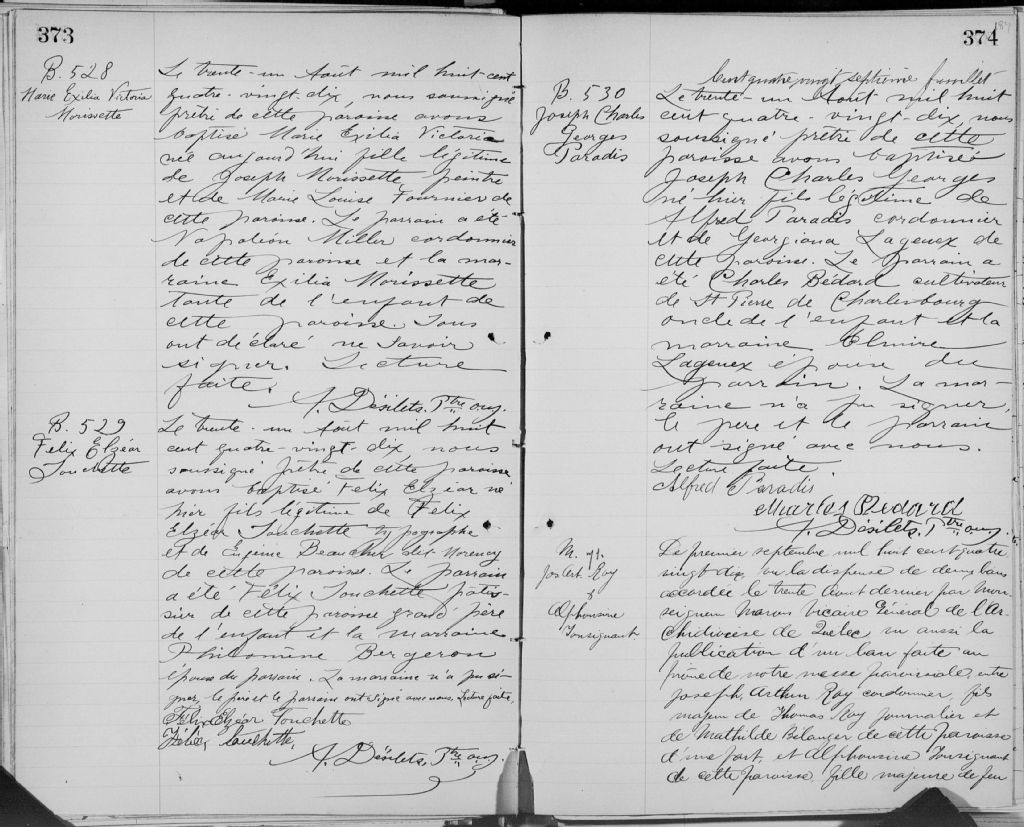 373
B. 528
Marie Exilia Victoria
Morissette
Le trente-un Août mil huit-cent
quatre-vingt-dix, nous soussigné
prêtre de cette paroisse avons
baptisé Marie Exilia Victoria
née aujourd'hui fille légitime
de Joseph Morissette, peintre
et de Marie Louise Fournier de
cette paroisse. Le parrain a été
Napoléon Miller cordonnier
de cette paroisse et la mar-
raine Exilia Morissette
tante de l'enfant de
cette paroisse. Tous
ont déclaré ne savoir
signer. Lecture
faite.
A. Désilets. Ptre
B. 529
Felix Elzéar
Touchette
Le trente-un Août mil huit
cent quatre-vingt-dix, nous
soussigné prêtre de cette paroisse
avons baptisé Felix Elzéar né
hier fils légitime de Felix
Elzéar Touchette typographe
et de Eugénie Beaucher dit Morency
de cette paroisse. Le parrain
a été Félix Touchette pâtis-
sier de cette paroisse grand'père
de l'enfant et la marraine
Philomène Bergeron
épouse du parrain. La marraine n'a pu si-
gner, le père et le parrain ont signé avec nous, Lecture faite,
Felix Elzéar Touchette
Félix Touchette,
A. Désilets. Ptre
374
187
Cent quatre vingt septième feuillet
B. 530
Joseph Charles
Georges
Paradis
Le trente-un Août mil huit
cent quatre-vingt-dix, nous
soussigné prêtre de cette
paroisse avons baptisé
Joseph Charles Georges
né hier fils légitime de
Alfred Paradis cordonnier
et de Georgiana Lageuex de
cette paroisse. Le parrain a
été Charles Bédard cultivateur
de St Pierre de Charlesbourg
oncle de l'enfant et la
marraine Elmire
Lageuex épouse du
parrain. La mar-
raine n'a pu signer,
le père et le parrain
ont signé avec nous.
Lecture faite.
Alfred Paradis
Charles Bedard
A. Désilets. Ptre
M. 71.
Jos Art. Roy
&
Alphonsine
Tousignant
Le premier septembre mil huit cent quatre
vingt dix, vu la dispense de deux bans
accordée le trente Aout dernier par Mon-
seigneur Marois Vicaire Général de l'Ar-
chidiocèse de Québec vu aussi la
publication d'un ban faite au
prône de notre messe paroissiale, entre
Joseph Arthur Roy cordonnier, fils
majeur de Thomas Roy journalier et
de Mathilde Bélanger de cette paroisse
d'une part, et Alphonsine Tousignant
de cette paroisse, fille majeure de feu